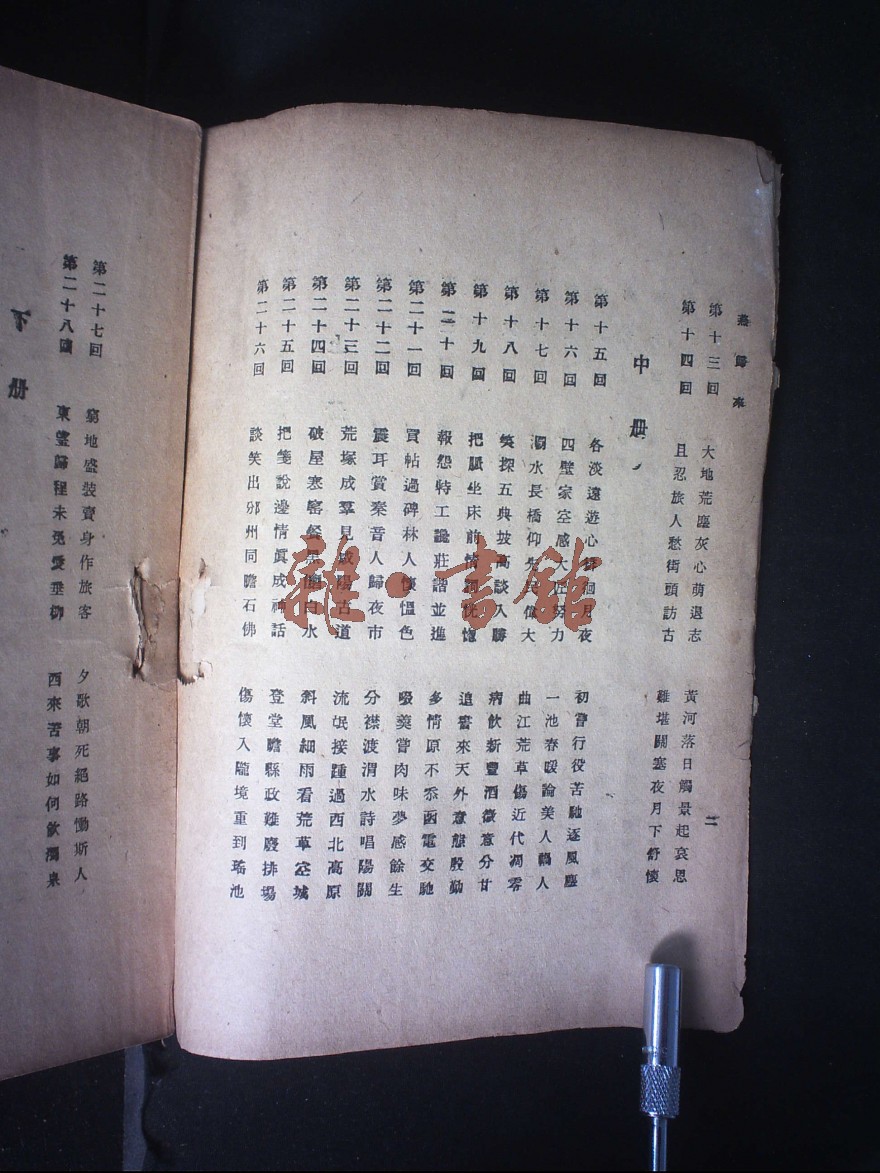 燕歸來
第十三回 大地荒塵灰心萌退志 黃河落日觸景起哀思
第十四回 且忍旅人愁街頭訪古 難堪關塞夜月下舒懷
二
中册
第十五回 各淡遠遊心徘徊月夜 初嘗行役苦馳逐風塵
第十六回 四壁家空感大匠努力 一池春暖論美人誤人
第十七回 灞水長橋仰先民偉大 曲江荒草傷近代凋零
第十八回 笑探五典坡高談入勝 病飲新豐酒微意分甘
第十九回 把臥坐床前情詞恍惚 追書來天外意態殷勤
第二十回 報怨特工讒莊諧並進 多情原不忝函電交馳
第二十一回 買帖過碑林人懷慍色 啜羹嘗肉味夢感餘生
第二十二回 震耳賞秦音人歸夜市 分襟渡渭水詩唱陽關
第二十三回 荒塚成羣見咸陽古道 流氓接踵過西北高原
第二十四回 破屋寒窰餐黑麵白水 斜風細雨看荒草空城
第二十五回 把箋說邊情真成神話 登堂瞻縣政難廢排場
第二十六回 談笑出邠州同瞻石佛 傷懷入隴境重到瑤池
下册
第二十七回 窮地盛裝賣身作旅客 夕歌朝死絕路慟斯人
第二十八回 東望歸程未免愛垂柳 西來苦事如何飲濁泉
雜·書館